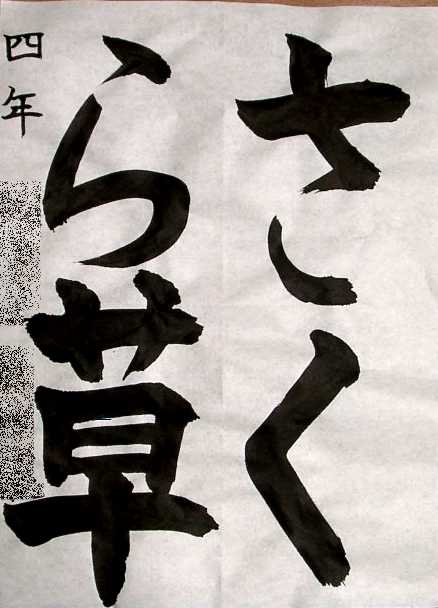 さく
ら草
四年